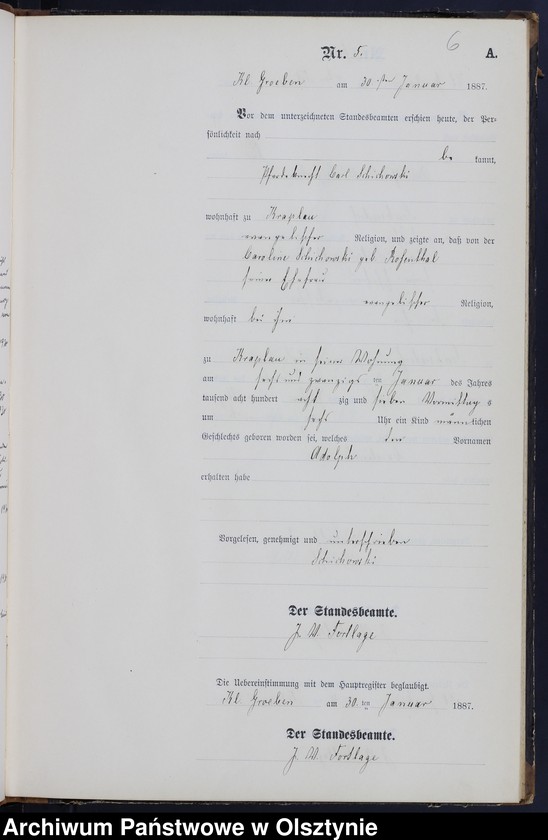 6
Nr. 5. A.
Kl. Groeben am 30 sten Januar 1887.
Vor dem unterzeichneten Standesbeamten erschien heute, der Per-
sönlichkeit nach
be kannt,
Pferdeknecht Carl Schichowski
wohnhaft zu Kraplau
evangelischer Religion, und zeigte an, daß von der
Caroline Schichowski geb Rosenthal
seiner Ehefrau
evangelischer Religion,
wohnhaft bei ihm
zu Kraplau in seiner Wohnung
am sechs und zwanzigsten Januar des Jahres
tausend acht hundert acht zig und sieben Vormittag s
um sechs Uhr ein Kind männlichen
Geschlechts geboren worden sei, welches den Vornamen
Adolph
erhalten habe
Vorgelesen, genehmigt und unterschrieben
Schichowski
Der Standesbeamte.
J. W. Fortlage
Die Uebereinstimmung mit dem Hauptregister beglaubigt.
Kl. Groeben am 30. ten Januar 1887.
Der Standesbeamte.
J. W. Fortlage
Archiwum Państwowe w Olsztynie